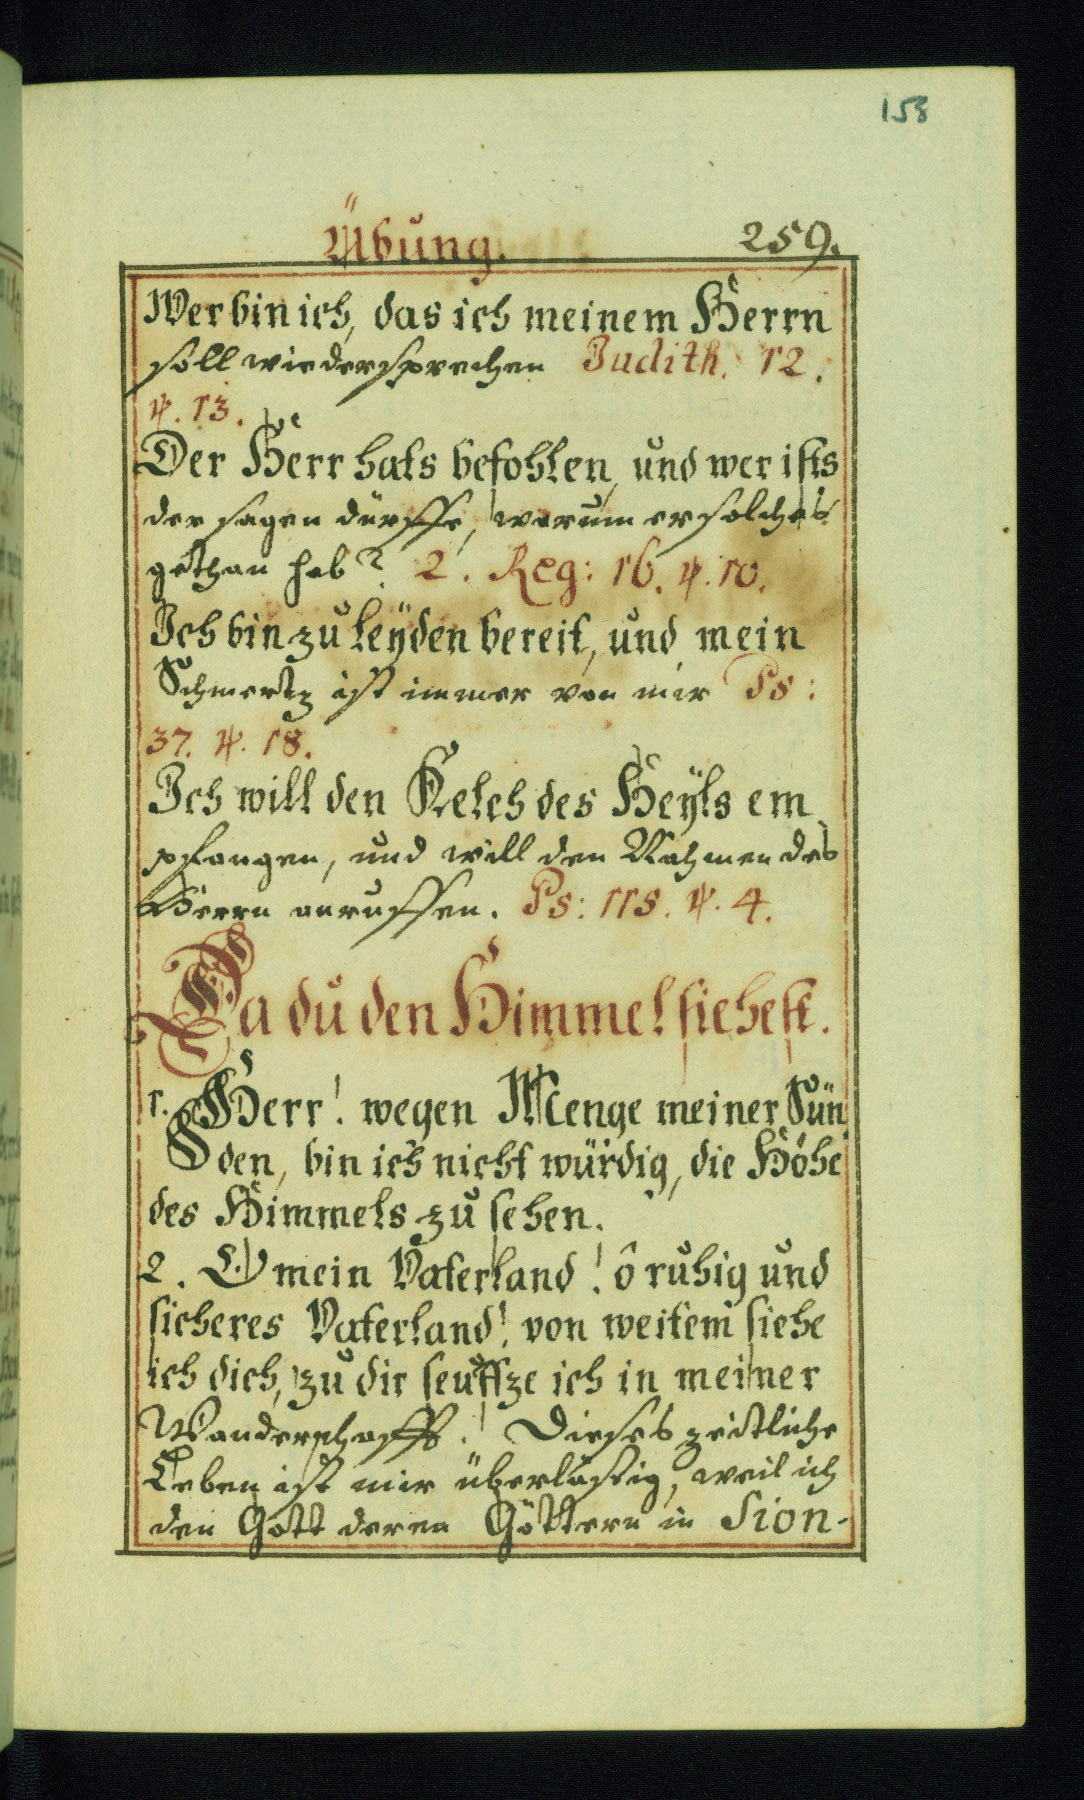 153
Übung. 259.
Wer bin ich, das ich meinem Herrn
soll wiedersprechen Judith. 12.
℣. 13.
Der Herr hats befohlen, und wer ists
der sagen dürffe, warum er solches
gethan hab? 2. Reg: 16. ℣. 10.
Ich bin zu leÿden bereit, und mein
Schmertz ist immer von mir Ps:
37. ℣. 18.
Ich will den Kelch des Heÿls em
pfangen, und will den Nahmen des
Herrn anruffen. Ps: 115. ℣. 4.
Da du den Himmel siehest.
1. Herr! wegen Menge meiner Sün
den, bin ich nicht würdig, die Höhe
des Himmels zu sehen.
2. O mein Vaterland! ô ruhig und
sicheres Vaterland! von weitem siehe
ich dich, zu dir seuffze ich in meiner
Wanderschafft! Dieses zeitliche
Leben ist mir überlästig, weil ich
den Gott deren Göttern in Sion-